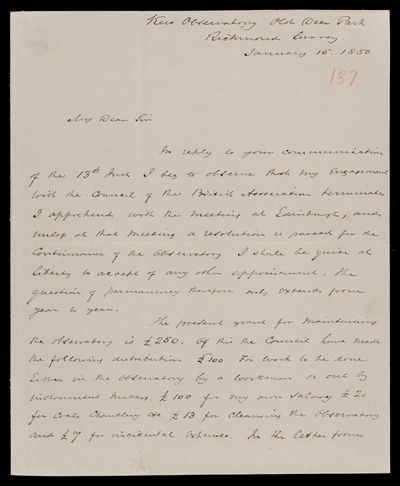 Kew Observatory Old Deer Park
Richmond Surrey.
January 15. 1850
137
My Dear Sir
In reply to your communication
of the 13th Inst I beg to observe that my Engagement
with the Council of the British Association terminates
I apprehend with the meeting at Edinburgh, and
unless at that meeting a resolution is passed for the
Continuance of the Observatory I shall be quite at
liberty to accept of any other appointment. The
question of permanency therefore only extends from
year to year.
The present grant for maintaining
the observatory is £250. Of this the Council have made
the following distribution £100 for work to be done
Either in the Observatory by a workman or out by
instrument makers. £100 for my own salary £20
for Coals Chandlery &c £13 for cleansing the Observatory
and £7 for incidental expenses. In the letter from